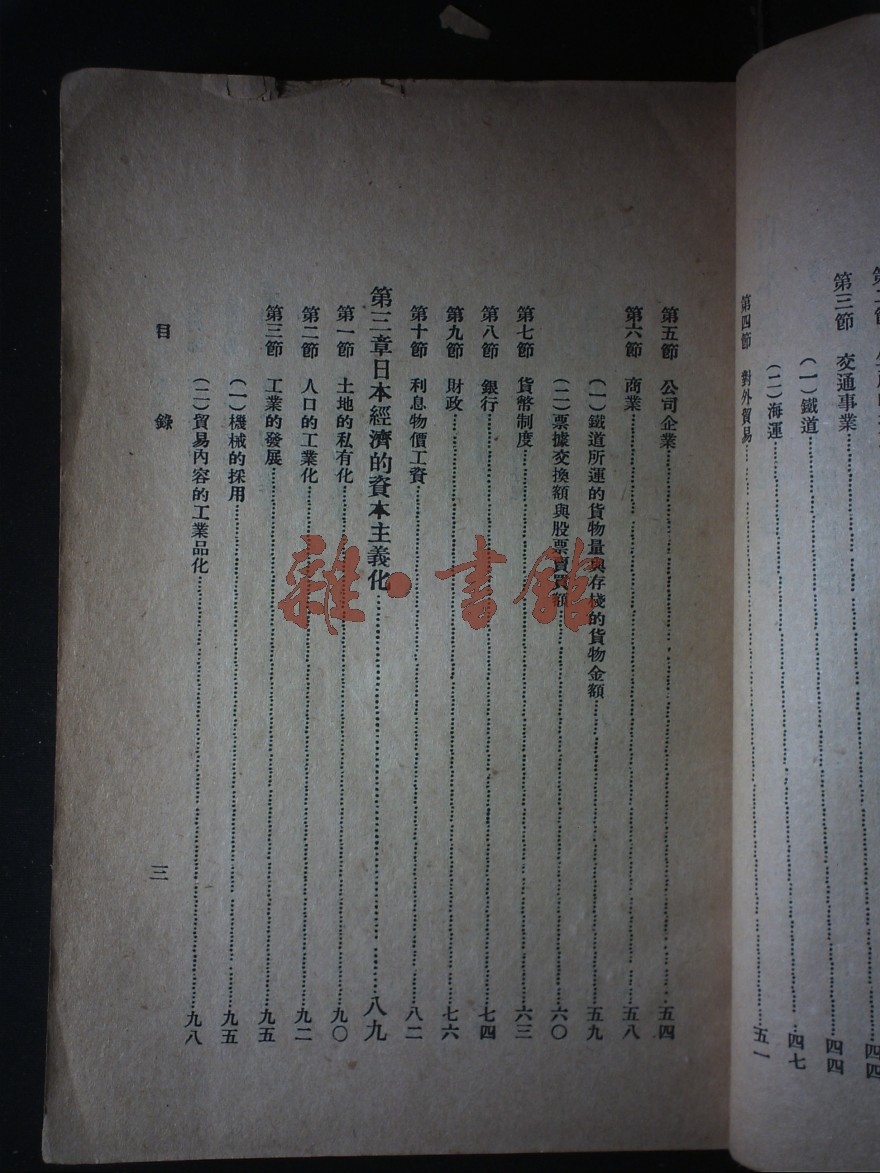 第三節 交通事業 四四
(一)鐵道 四四
(二)海運 四七
第四節 對外貿易 五一
第五節 公司企業 五四
第六節 商業 五八
(一)鐵道所運的貨物量與存棧的貨物金額 五九
(二)票據交換額與股票賣買額 六〇
第七節 貨幣制度 六三
第八節 銀行 七四
第九節 財政 七六
第十節 利息物價工資 八二
第三章日本經濟的資本主義化 八九
第一節 土地的私有化 九〇
第二節 人口的工業化 九二
第三節 工業的發展 九五
(一)機械的採用 九五
(二)貿易內容的工業品化 九八
目錄
三
雜·書館